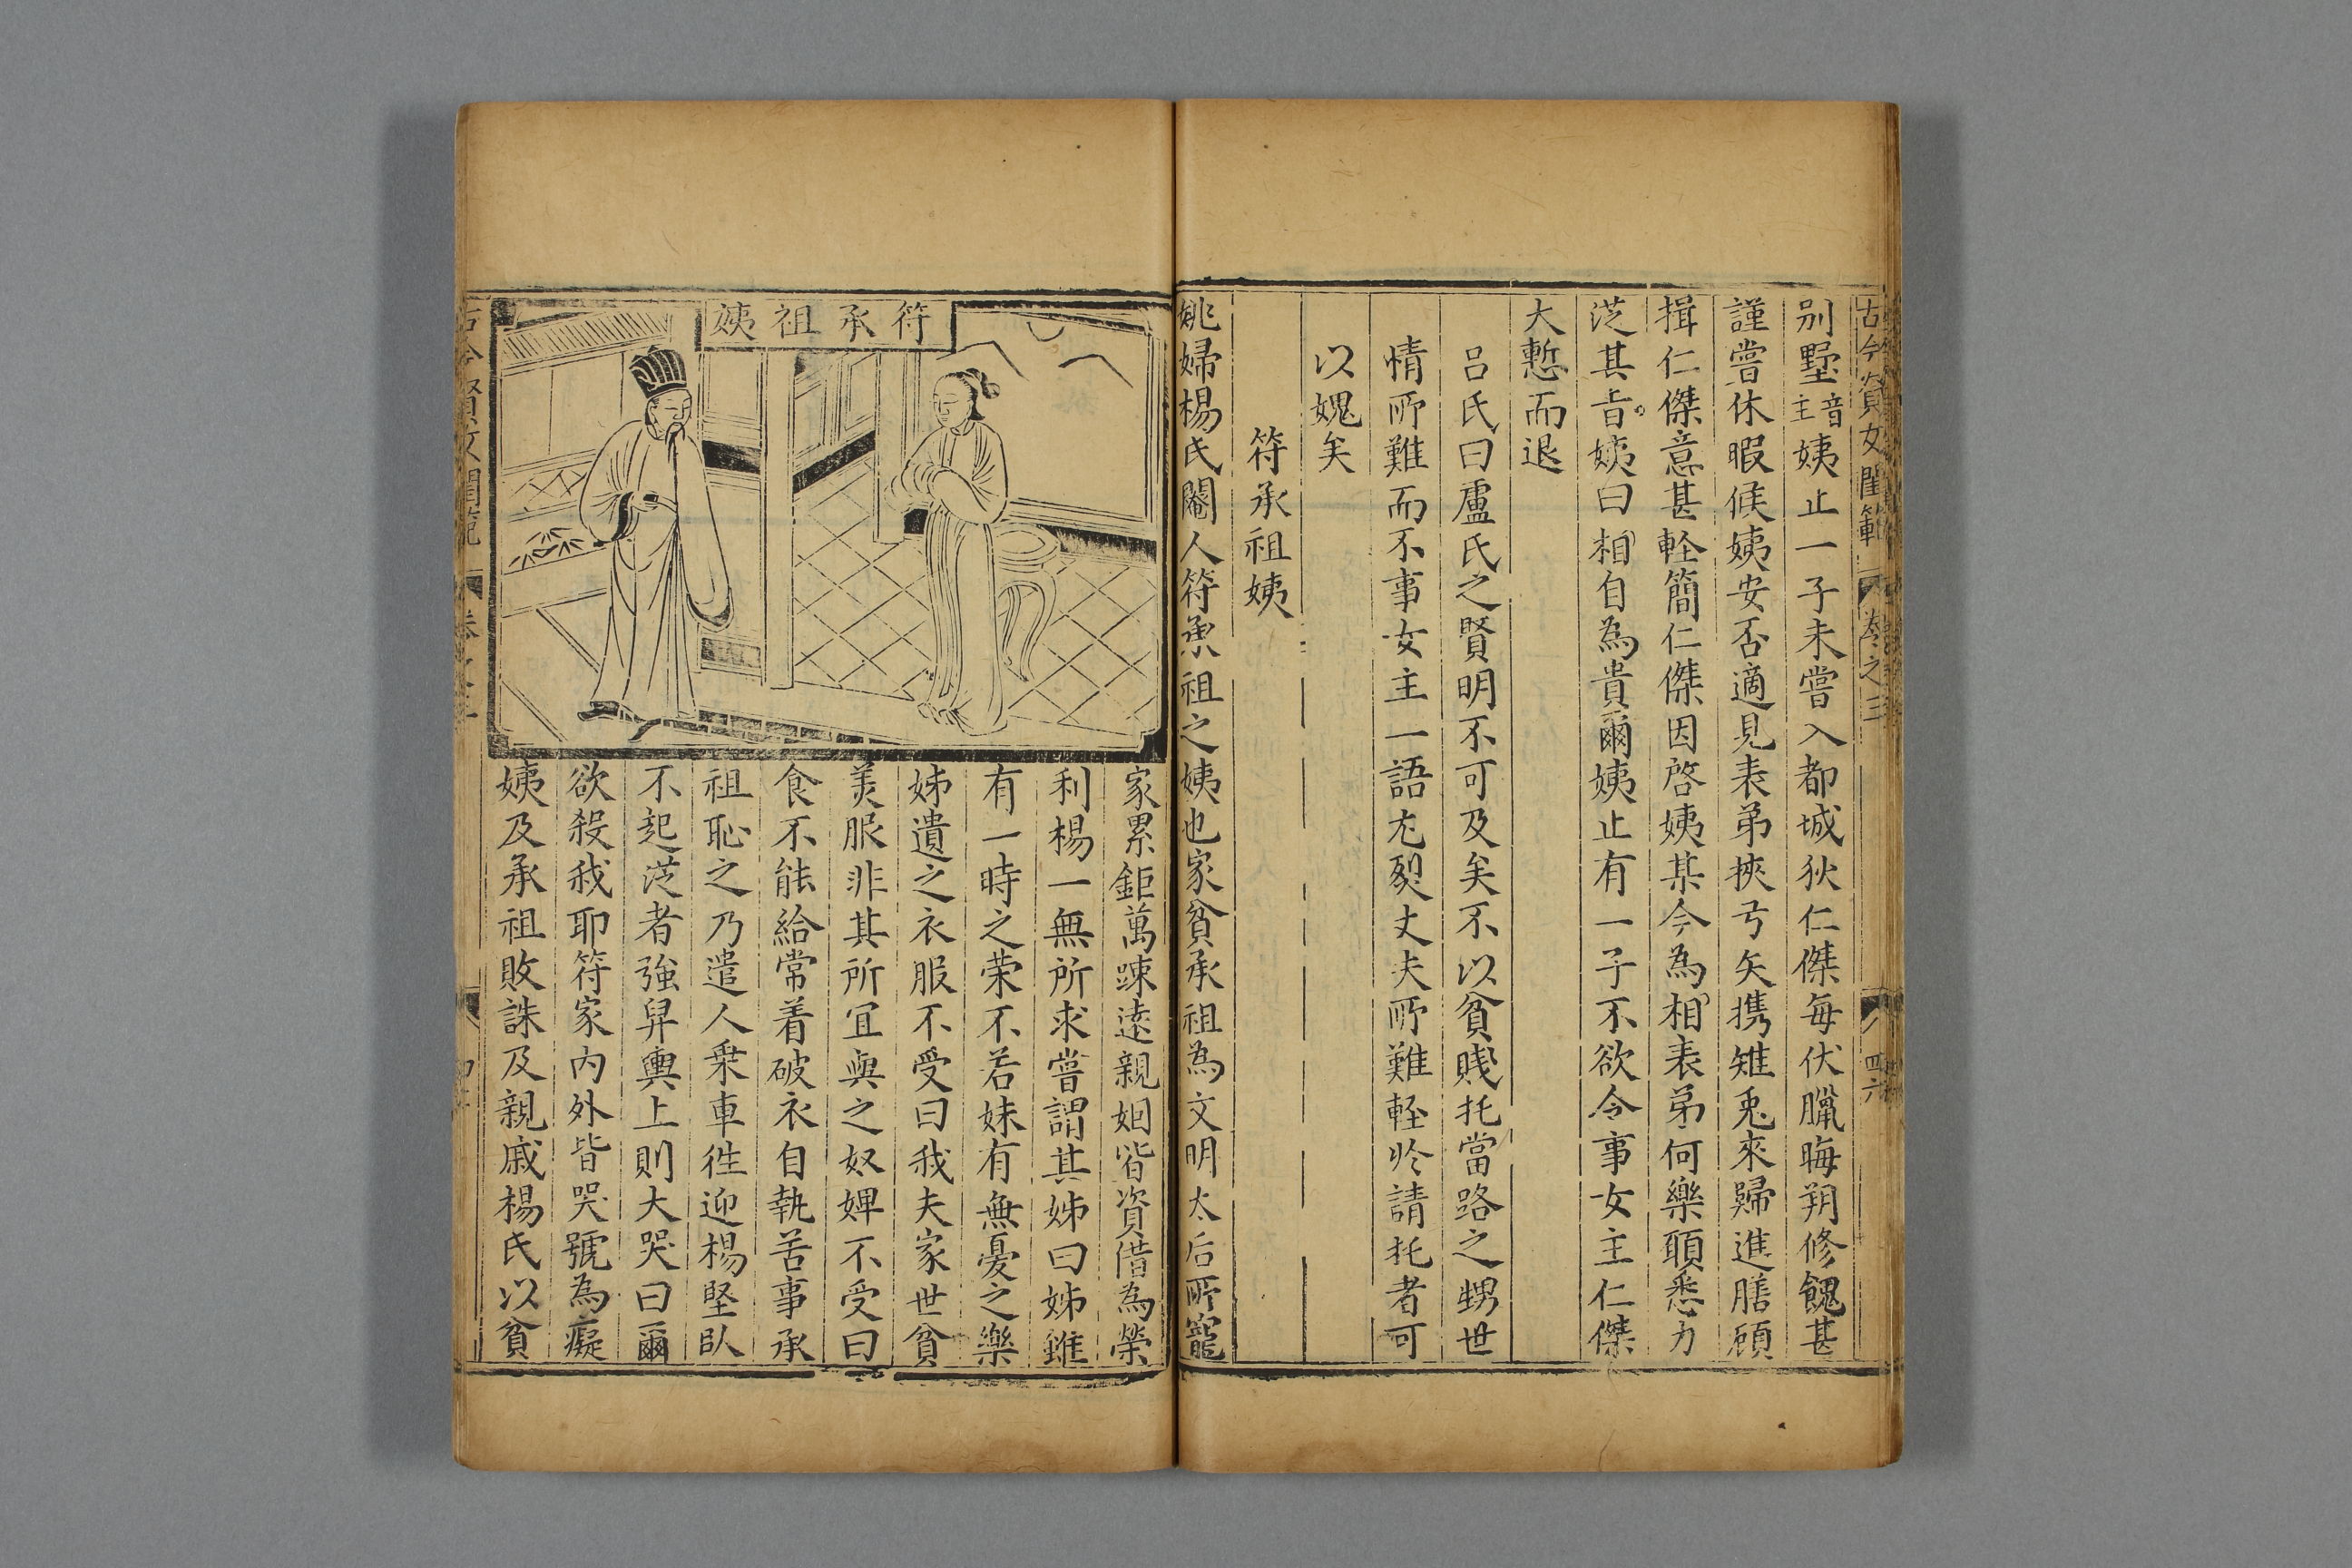 古今賢女閨範 卷之三 四六
别墅音主姨止一子未嘗入都城狄仁傑每伏臘晦朔修餽甚
謹嘗休暇候姨安否適見表弟挾弓矢携雉兎來歸進膳顧
揖仁傑意甚軽簡仁傑因啓姨某今為相表弟何樂頋悉力
從其㫖姨曰相自為貴爾姨止有一子不欲令事女主仁傑
大慙而退
吕氏曰盧氏之賢明不可及矣不以貧賤托當路之甥世
情所難而不事女主一語尤烈丈夫所難軽扵請托者可
以媿矣
符承祖姨
姚婦楊氏閹人符承祖之姨也家貧承祖為文明太后所寵
符承祖姨
家累鉅萬踈逺親姻皆資借為榮
利楊一無所求嘗謂其姊曰姊雖
有一時之荣不若妹有無憂之樂
姊遺之衣服不受曰我夫家世貧
美服非其所宜與之奴婢不受曰
食不能給常着破衣自執苦事承
祖恥之乃遣人乗車徃迎楊堅臥
不起從者強舁輿上則大哭曰爾
欲殺我耶符家内外皆哭號為癡
姨及承祖敗誅及親戚楊氏以貧
古今賢女閨範 卷之三